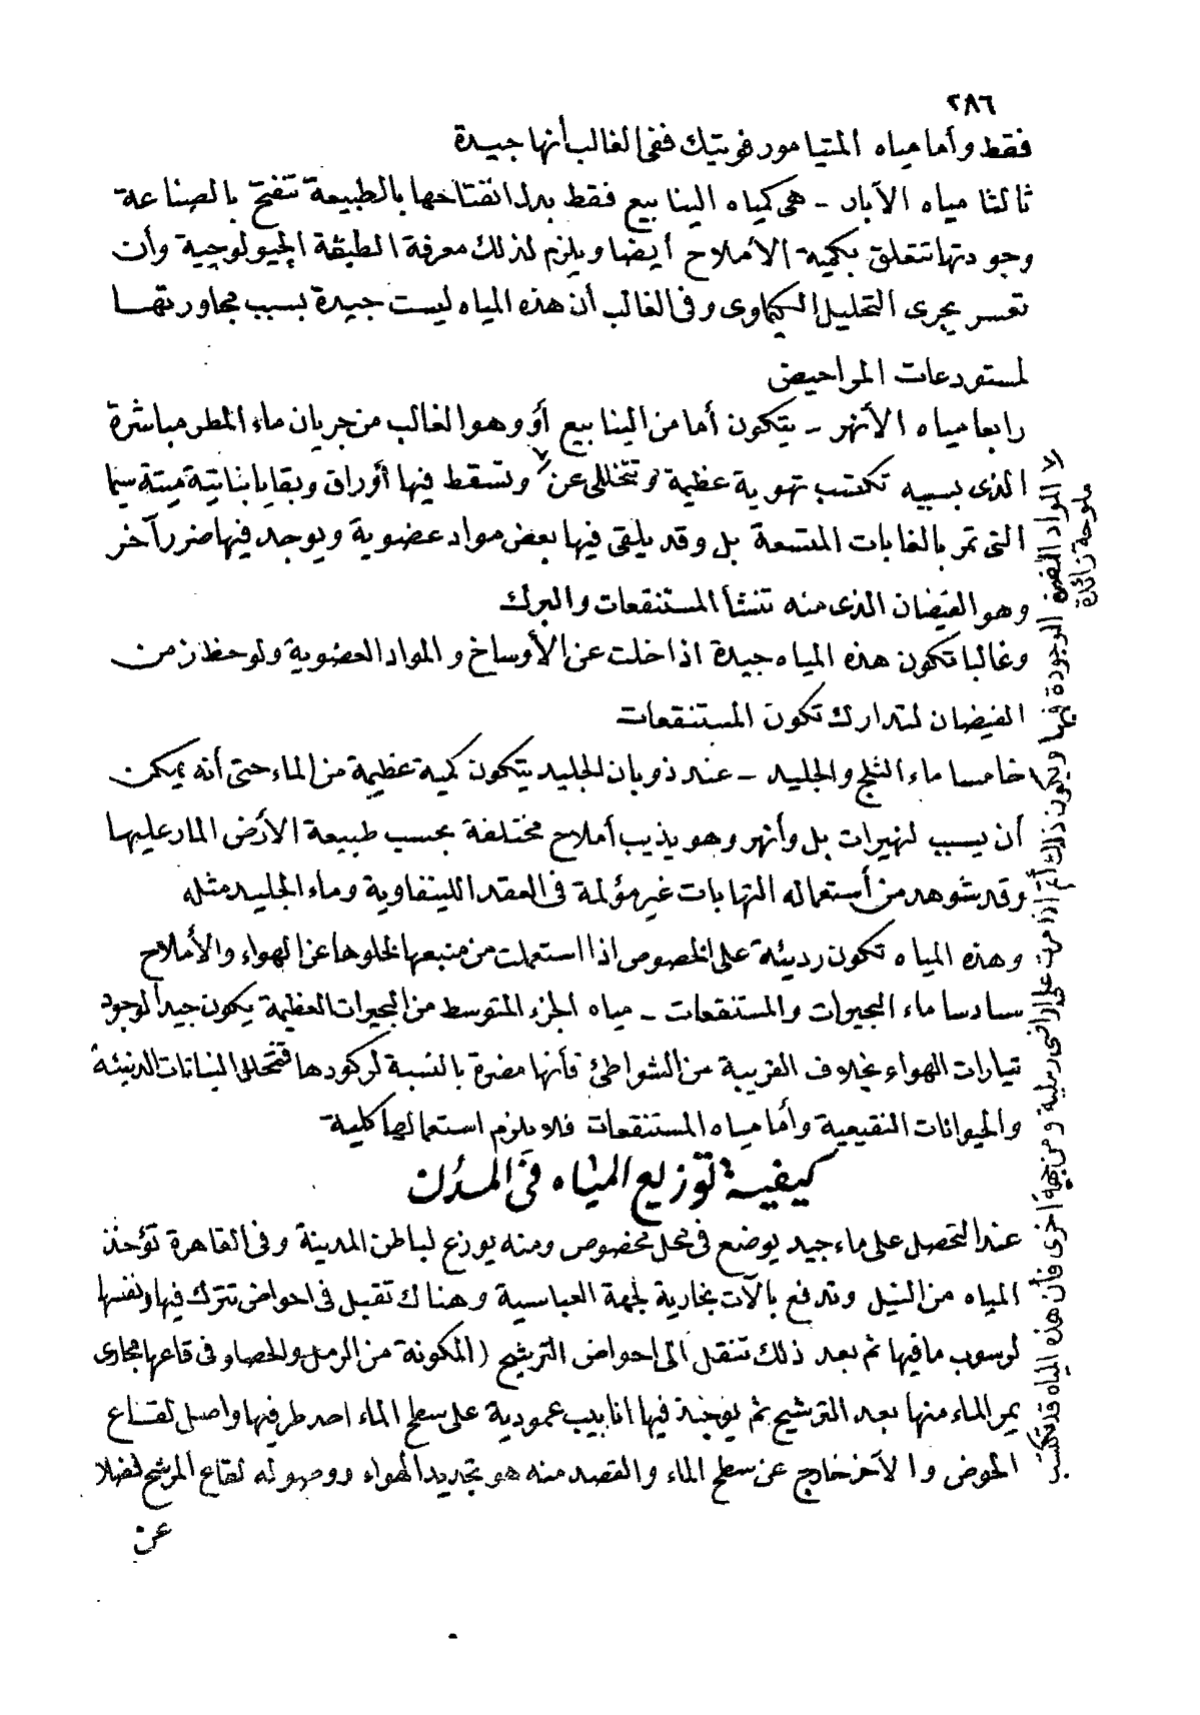 ٢٨٦
فقط وأما مياه المتيامورفوتيك ففى الغالب أنها جيدة
ثالثا مياه الآبار - هى كمياه الينابيع فقط بدل انفتاحها بالطبيعة تنفتح بالصناعة
وجودتها تتعلق بكمية الأملاح أيضا ويلزم لذلك معرفة الطبقة الجيولوجية وأن
تعسر يجرى التحليل الكيماوى وفى الغالب أن هذه المياه ليست جيدة بسبب مجاورتها
لمستودعات المراحيض
رابعا مياه الأنهر - يتكون أما من الينابيع أو وهو الغالب من جريان ماء المطر مباشرة
الذى بسببه تكتسب تهوية عظيمة وتتخلى عن وتسقط فيها أوراق وبقايا نباتية ميتة سيما
التى تمر بالغابات المتسعة بل وقد يلقى فيها بعض مواد عضوية ويوجد فيها ضرر آخر
وهو الفيضان الذى منه تنشأ المستنقعات والبرك
وغالبا تكون هذه المياه جيدة اذا خلت عن الأوساخ والمواد العضوية ولوحظ زمن
الفيضان لتدارك تكون المستنقعات
خامسا ماء الثلج والجليد - عند ذوبان الجليد يتكون كمية عظيمة من الماء حتى أنه يمكن
أن يسبب نهيرات بل وأنهر وهو يذيب أملاح مختلفة بحسب طبيعة الأرض المار عليها
وقد شوهد من أستعماله التهابات غير مؤلمة فى العقد اللينفاوية وماء الجليد مثله
وهذه المياه تكون رديئة على الخصوص اذا استعملت من منبعها لخلوها عن الهواء والأملاح
سادسا ماء البحيرات والمستنقعات - مياه الجزء المتوسط من البحيرات العظيمة يكون جيدا لوجود
تيارات الهواء بخلاف القريبة من الشواطئ فأنها مضرة بالنسبة لركودها فتتحلل النباتات الدنيئة
والحيوانات النقيعية وأما مياه المستنقعات فلا يلزم استعمالها كلية
كيفية توزيع المياه فى المدن
عند التحصل على ماء جيد يوضع فى محل مخصوص ومنه يوزع لباطن المدينة وفى القاهرة تؤخذ
المياه من النيل وتدفع بالآت بخارية لجهة العباسية وهناك تقبل فى احواض تترك فيها ونفسها
لرسوب ما فيها ثم بعد ذلك تنقل الى احواض الترشيح (المكونة من الرمل والحصا وفى قاعها مجارى
يمر الماء منها بعد الترشيح ثم يوجد فيها انابيب عمودية على سطح الماء احد طرفيها واصل لقاع
الحوض والآخر خارج عن سطح الماء والقصد منه هو تجديد الهواء ووصوله لقاع المرشح فضلا
عن
لا المواد الموجودة فيها ويكون ذلك أتم اذا مرت على اراضى رملية ومن جهة اخرى فأن هذه المياه قد تكتسب
ملوحة زائدة